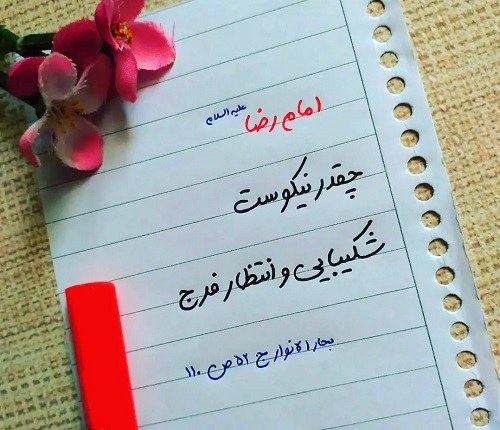 امام رضا علیه السلام
چقدر نیکوست
شکیبایی و انتظار فرج
بحار الانوار ج ۵۲ ص ۱۱۰